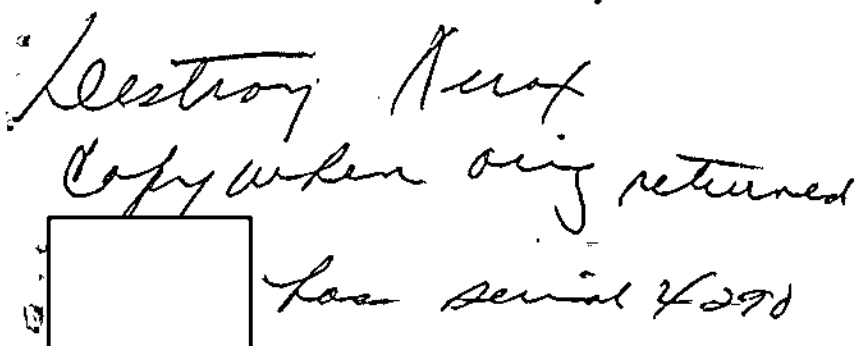 Destroy Xerox
Copy when orig returned
has serial 4290